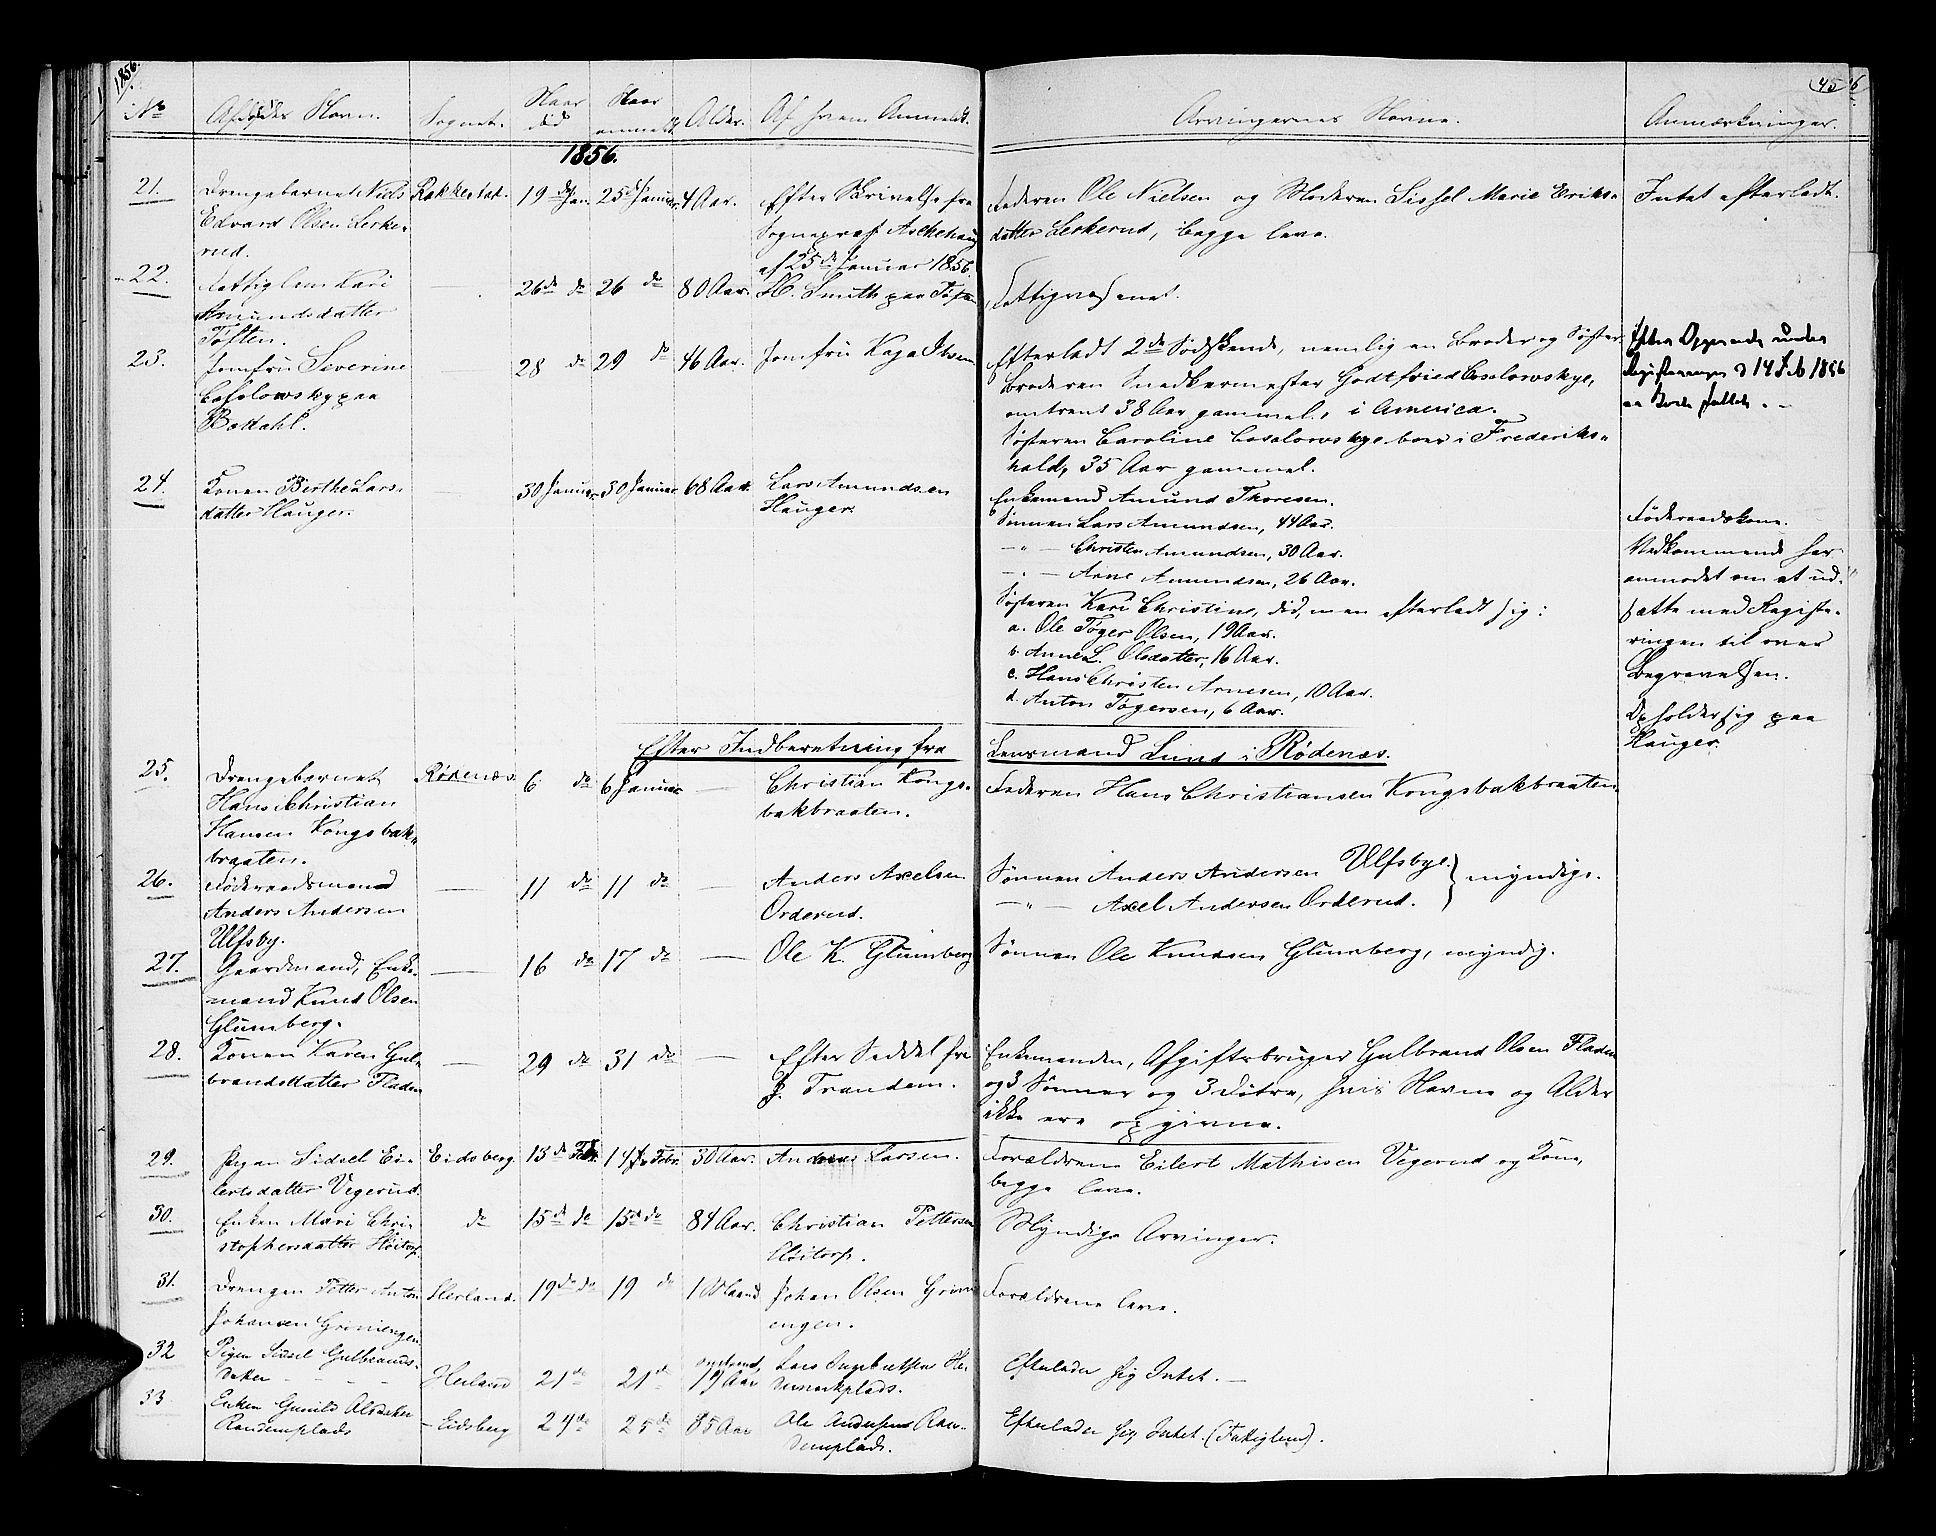 1856.
No
Afdødes Navn.
Sognet.
Naar død
Naar anmeldt
Alder.
Af hvem Anmeldt.
Arvingernes Navne.
Anmærkninger.
45
1856.
21.
Drengebarnet Niels
Edvard Olsen Lerke-
rud.
Rakkestad.
19de Jan.
25de Januar.
4 Aar.
Efter Skrivelse fra
Sognepræst Aschehoug
af 25de Januar 1856.
Faderen Ole Nielsen og Moderen Sissel Marie Eriks-
datter Lerkerud, begge leve.
Intet efterladt.
22.
Fattiglem Kari
Amundsdatter
Tøften.
26de do
26 do
80 Aar.
H. Smith paa
Fattigvæsenet.
23.
Jomfru Severine
Coslowsky paa
Bodahl.
28 do
29 do
46 Aar.
Jomfru Kaja Ibsen
Efterladt 2de Sødskende, nemlig en Broder og Søster
Broderen Snedkermester Godtfried Coslowskye,
omtrent 38 Aar gammel, i America.
Søsteren Caroline Coslowskye boer i Frederiks-
hald, 35 Aar gammel.
14 Feb 1856
24.
Konen Birthe Lars-
datter Hauger.
30 Januar
30 Januar
68 Aar.
Lars Amundsen
Hauger.
Enkemand Amund Thoresen.
Sønnen Lars Amundsen, 44 Aar.
—„— Christen Amundsen, 30 Aar.
—„— Arne Amundsen, 26 Aar.
Søsteren Kari Christine, død, men efterladt sig:
a. Ole Tøger Olsen, 19 Aar.
b. Anne L. Olsdatter, 16 Aar.
c. Hans Christen Arnesen, 10 Aar.
d. Anton Tøgersen, 6 Aar.
Føderaadskone.
Vedkommende har
anmodet om at ud-
sætte med Registe-
ringen til over
Begravelsen.
Opholder sig paa
Hauger.
Efter Indberetning fra Lensmand Lund i Rødenæs.
25.
Drengebarnet
Hans Christian
Hansen Kongsbak-
braaten.
Rødenæs
6 do
6 Januar
—
Christian Kongs-
bakbraaten.
Faderen Hans Christiansen Kongsbakbraaten.
26.
Føderaadsmand
Anders Andersen
Ulfsby.
11 do
11 do
—
Anders Axelsen
Orderud.
Sønnen Anders Andersen Ulfsbye.
—„— Axel Andersen Orderud. } myndige.
27.
Gaardmand, Enke-
mand Knud Olsen
Glumberg.
16 do
17 do
—
Ole K. Glumberg
Sønnen Ole Knudsen Glumberg, myndig.
28.
Konen Karen Gul-
brandsdatter Fladen
29 do
31 do
—
Efter Seddel fra
J. Trandem.
Enkemanden, Afgiftsbruger Gulbrand Olsen Fladen
og 3 Sønner og 3 Døtre, hvis Navne og Alder
ikke ere opgivne.
29.
Pigen Sidsel Ei-
lertsdatter Vegerud.
Eidsberg.
13de Feb.
14de Febr.
30 Aar.
Andreas Larsen.
Forældrene Eilert Mathisen Vegerud og Kone,
begge leve.
30.
Enken Mari Chri-
stophersdatter Høitorp.
do
15de do
15de do
84 Aar.
Christian Pettersen
Høitorp.
Myndige Arvinger.
31.
Drengen Petter Anton
Johansen Grimengen
Herland.
19de do
19 do
1 Maaned
Johan Olsen Grim-
engen.
Forældrene leve.
32
Pigen Sidsel Gulbrands-
datter
Herland
21de
21de
79 Aar
Lars Ingebretsen He-
demarkplads.
Efterlader sig Intet. —
33
Enken Gunild
Ramdemplads
— Eidsberg
24de
25de
85 Aar
Ole Andersen Ram-
demplads.
Efterlader sig Intet. (Fattiglem).